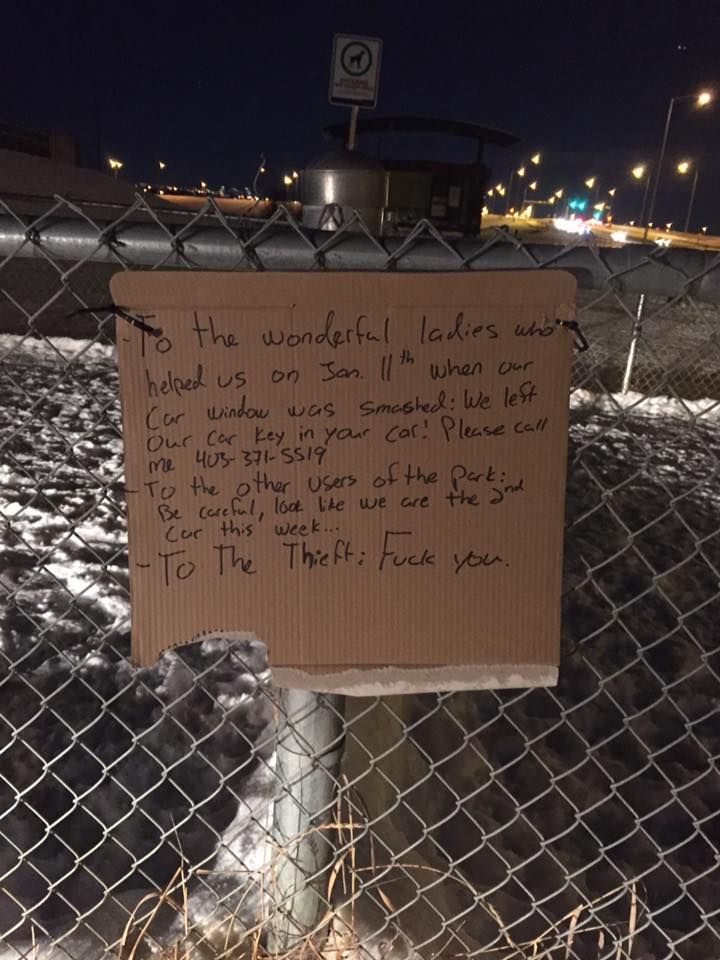 -To the wonderful ladies who
helped us on Jan. 11th when our
Car window was smashed: We left
Our car key in your car! Please call
me 403-371-5519
-To the other users of the park:
Be careful, look like we are the 2nd
Car this week...
-To The Thieft: Fuck you.